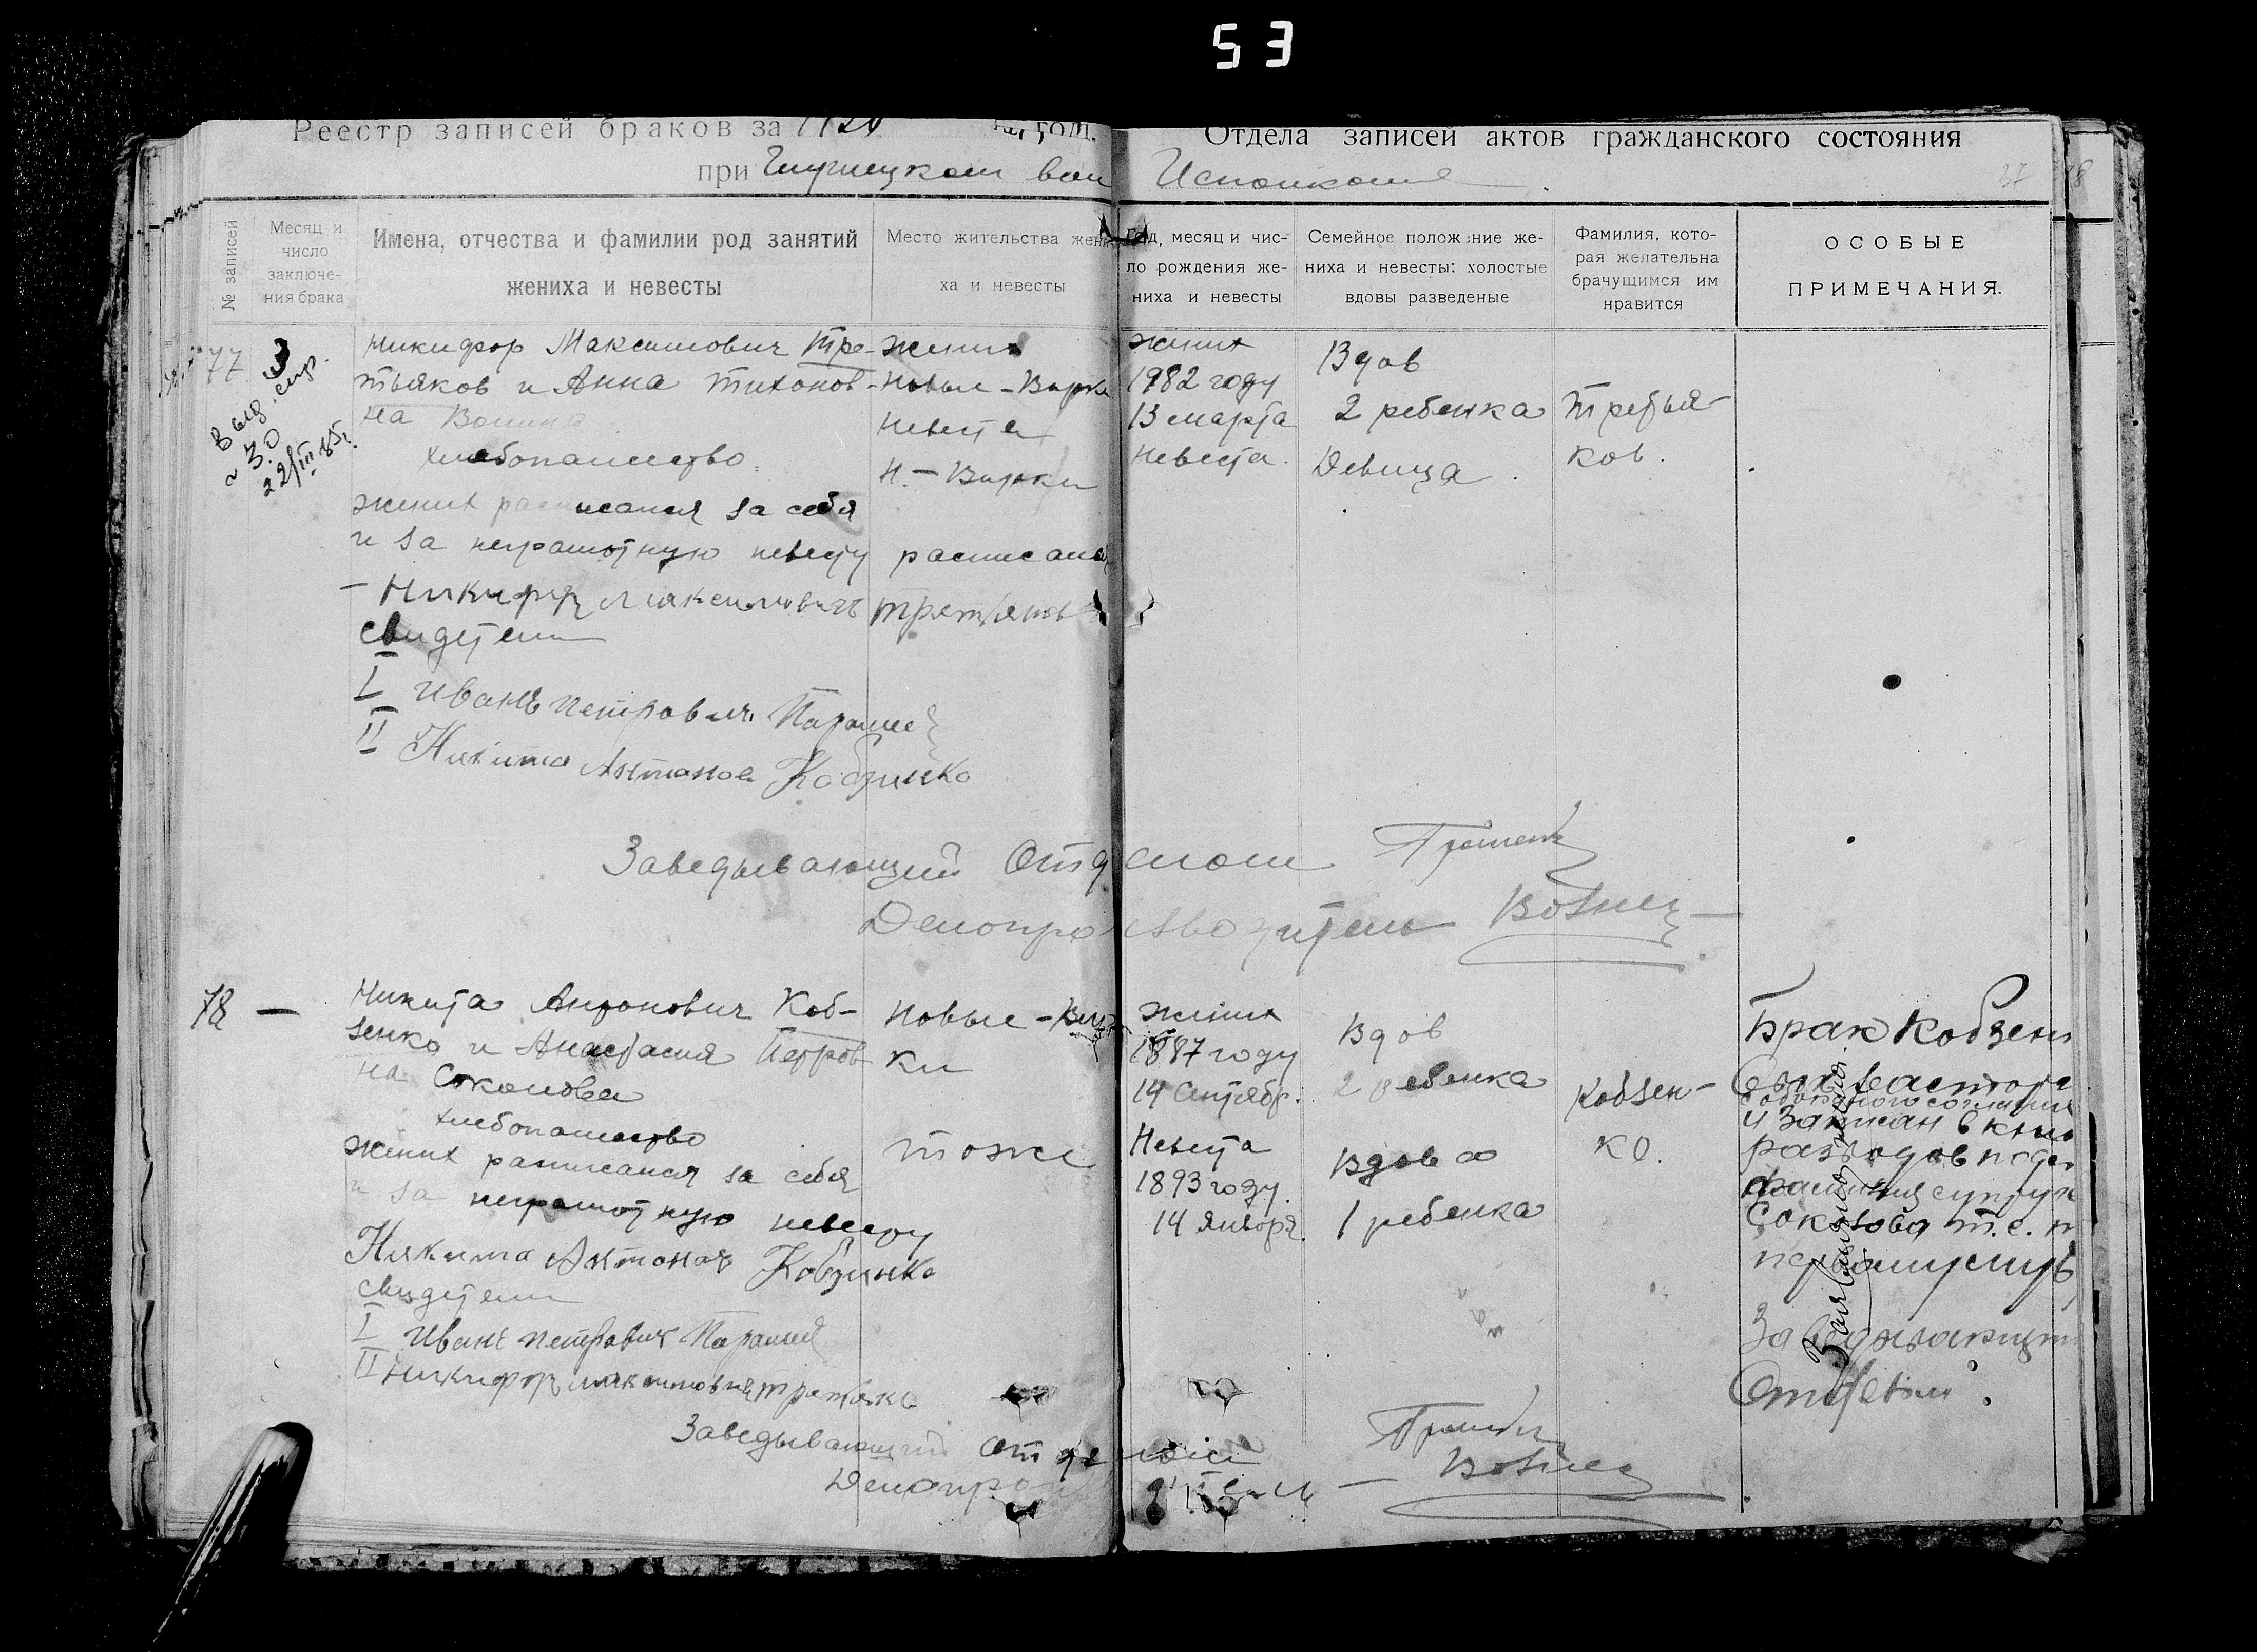 53
Реестр записей браков за 1920 год.
Отдела записей актов гражданского состояния
при вол Исполкоме
37
№ записей
Месяц и число заключе-ния брака
Имена, отчества и фамилии род занятий
жениха и невесты
Место жительства жени-
ха и невесты
Год, месяц и чис-
ло рождения же-
ниха и невесты
Семейное положение же-
ниха и невесты: холостые
вдовы разведеные
Фамилия, кото-
рая желательна
брачущимся им
нравится
ОСОБЫЕ
ПРИМЕЧАНИЯ.
77
выд. спр.
22/III 85г.
Никифор Максимович Тре-
тьяков и Анна Тихонов-
на
хлебопашество
жених расписался за себя
и за неграмотную невесту расписался
- Никифор Максимович Третьяков
свидетели
I Иванъ Петрович
II Никита Антонов Кобзинко
Жених
Новые - Вирки
Невеста
Н. - Вирки
Жених
1982 году
13 марта
Невеста
Вдов
2 ребенка
Девица
Третья-
ков.
Заведывающий Отделом
Делопроизводитель
78 —
Никита Антонович Коб-
зенко и Анастасия Петров-
на Соколова
хлебопашество
жених расписался за себя
и за неграмотную невесту
Никита Антонов Кобзинко
свидетели
I Иванъ Петрович
II Никифор Максимович Третьяков
Новые - Вир-
ки
тоже
Жених
1887 году
14 Сентябр.
Невеста
1893 году.
14 января
Вдов
2 ребенка
Вдова
1 ребенка
Кобзен-
ко.
Брак Кобзен
и записан в книг
разводов под
фамилия супруги
Соколова т.е. п
Заведывающий
Отделом.
Заведывающий Отделом
Делопроизводитель